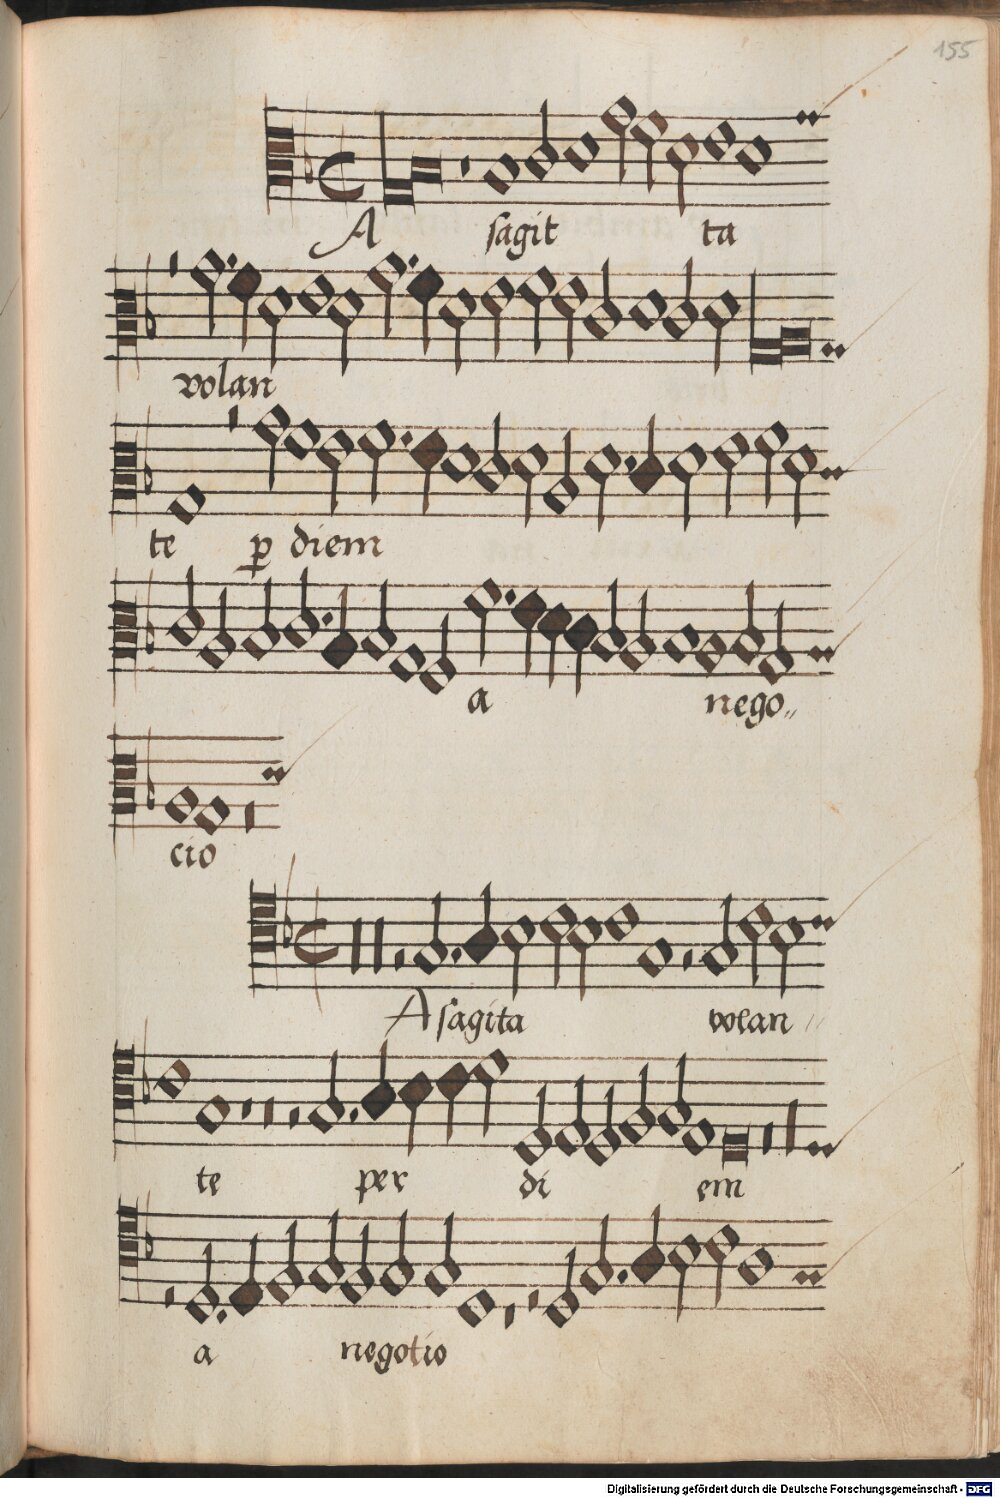 155
A sagit ta
volan
te p diem
a nego„
cio
A sagita volan
te per di em
a negotio
Digitalisierung gefördert durch die Deutsche Forschungsgemeinschaft - DFG